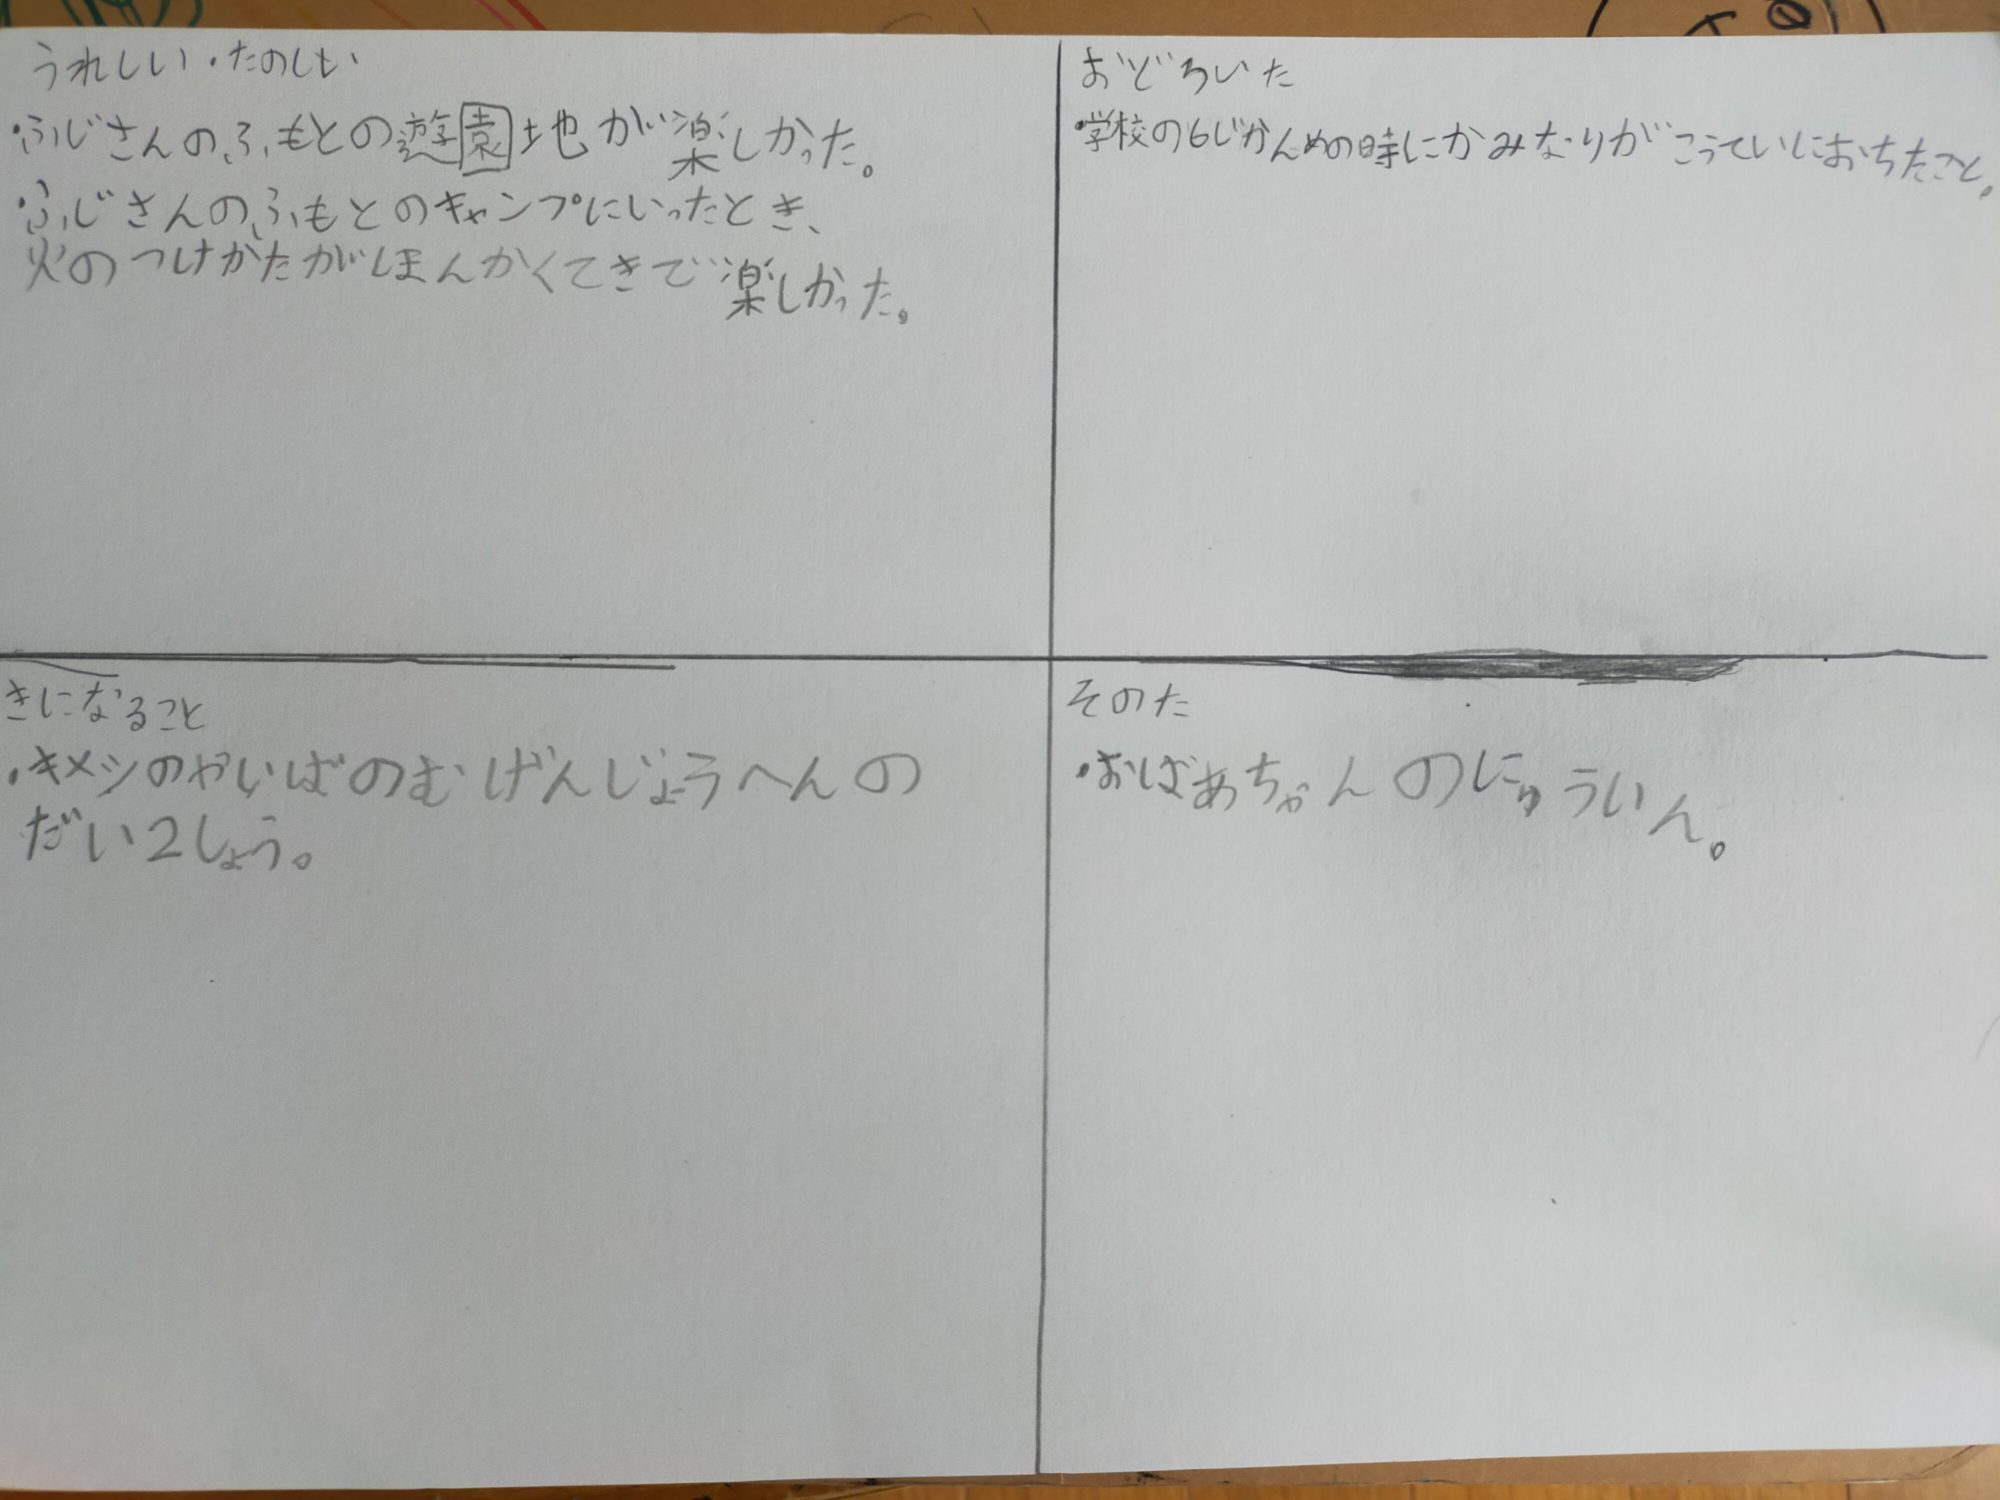 うれしい・たのしい
・ふじさんのふもとの遊園地が楽しかった。
・ふじさんのふもとのキャンプにいったとき、
火のつけかたがほんかくてきで楽しかった。
おどろいた
・学校の6じかんめの時にかみなりがこうていにおちたこと。
きになること
・キメツのやいばのむげんじょうへんの
だい2しょう。
そのた
・おばあちゃんのにゅういん。